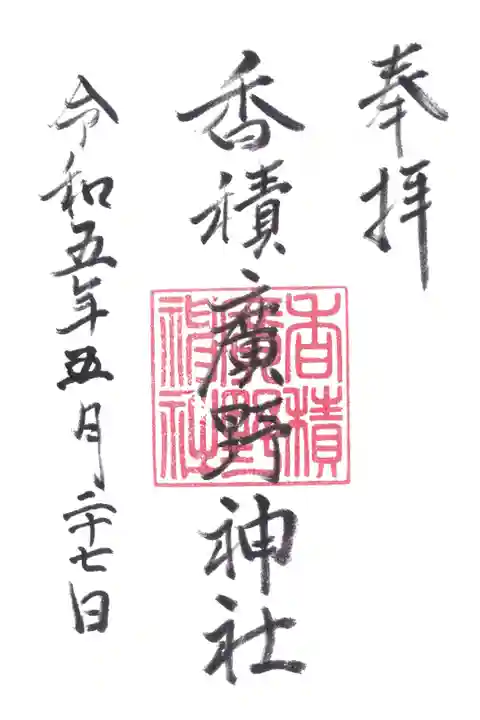 奉拝
香積廣野神社
香積廣野神社
令和五年五月二十七日